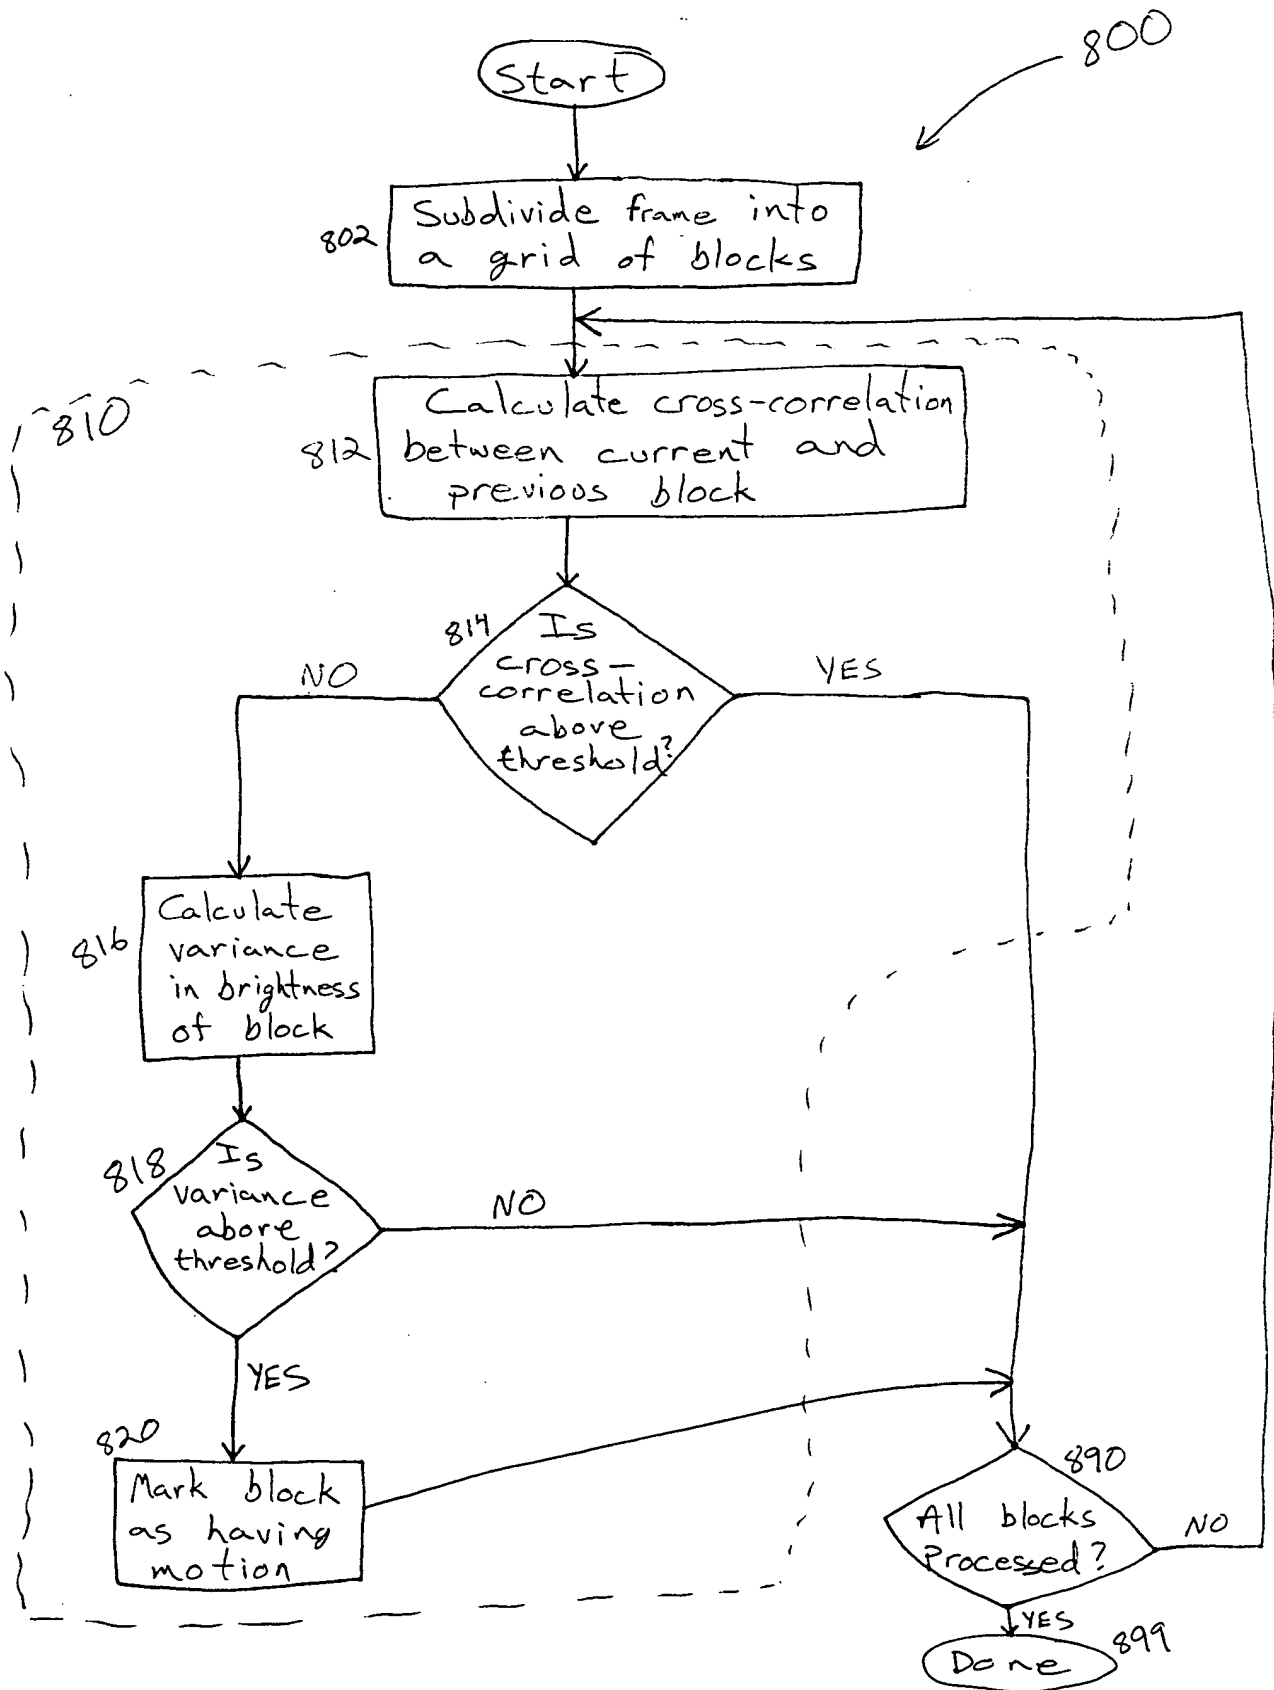 800
Start
802
Subdivide frame into
a grid of blocks
810
812
Calculate cross-correlation
between current and
previous block
814
Is
cross-
correlation
above
threshold?
NO
YES
816
Calculate
variance
in brightness
of block
818
Is
variance
above
threshold?
NO
YES
820
Mark block
as having
motion
890
All blocks
Processed?
NO
YES
Done
899